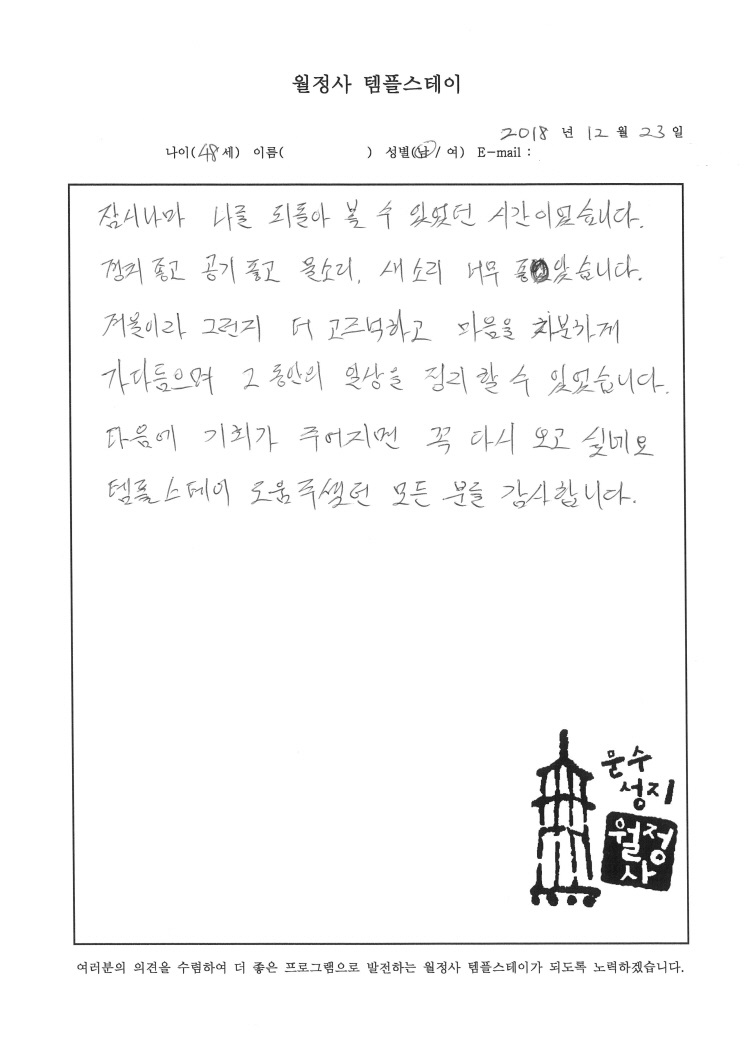 월정사 템플스테이
2018 년 12 월 23 일
나이(48세) 이름( ) 성별(남/여) E-mail :
잠시나마 나를 되돌아 볼 수 있었던 시간이었습니다.
경치 좋고 공기 좋고 물소리, 새소리 너무 좋았습니다.
겨울이라 그런지 더 고즈넉하고 마음을 차분하게
가다듬으며 그 동안의 일상을 정리 할 수 있었습니다.
다음에 기회가 주어지면 꼭 다시 오고 싶네요
템플스테이 도움주셨던 모든 분들 감사합니다.
문수
성지
월정
사
여러분의 의견을 수렴하여 더 좋은 프로그램으로 발전하는 월정사 템플스테이가 되도록 노력하겠습니다.